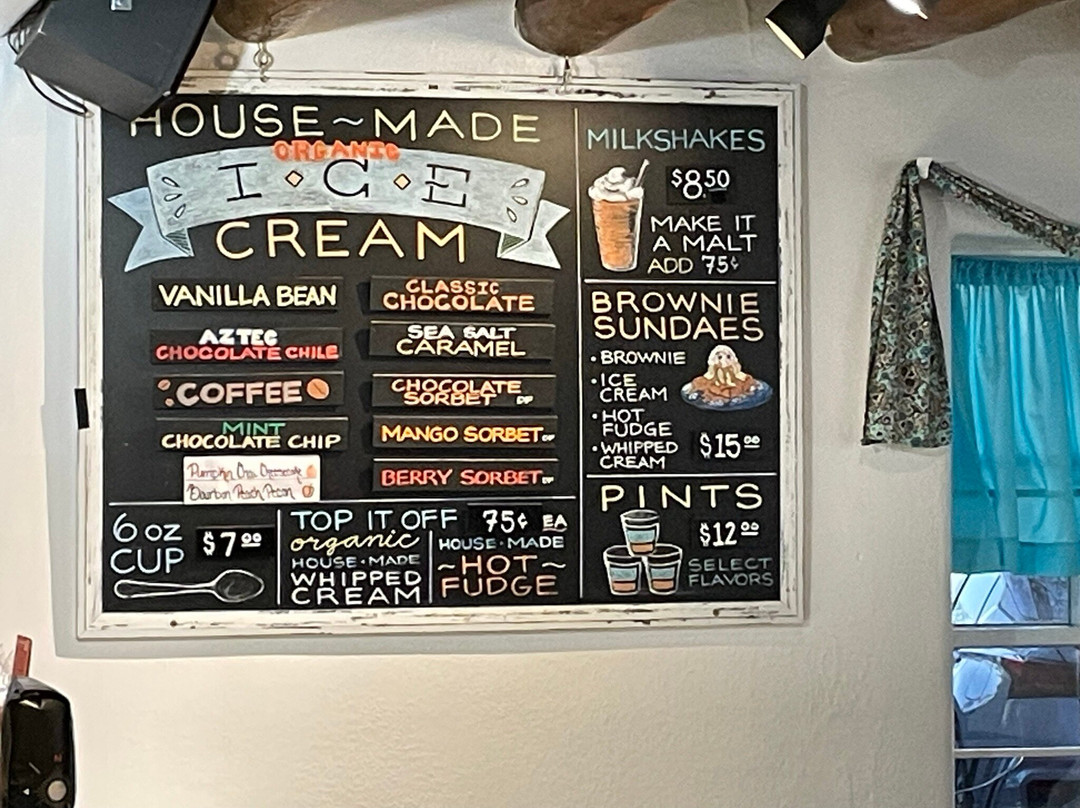 HOUSE~MADE
ORGANIC
I◆C◆E
CREAM
VANILLA BEAN
AZTEC
CHOCOLATE CHILE
COFFEE
MINT
CHOCOLATE CHIP
Pumpkin
Bourbon Peach Pecan
CLASSIC
CHOCOLATE
SEA SALT
CARAMEL
CHOCOLATE
SORBET DF
MANGO SORBET DF
BERRY SORBET DF
6 OZ
CUP
$7.00
TOP IT OFF 75¢ EA
organic
HOUSE·MADE
WHIPPED
CREAM
HOUSE·MADE
~HOT~
FUDGE
MILKSHAKES
$8.50
MAKE IT
A MALT
ADD 75¢
BROWNIE
SUNDAES
•BROWNIE
•ICE
CREAM
•HOT
FUDGE
•WHIPPED
CREAM
$15.00
PINTS
$12.00
SELECT
FLAVORS